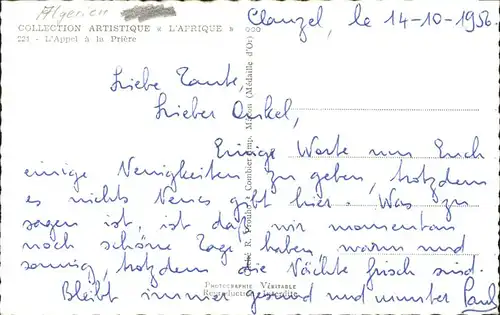 Algerien
COLLECTION ARTISTIQUE « L'AFRIQUE »
221 - L'Appel à la Prière
Clauzel, le 14-10-1956.
Liebe Tante,
Lieber Onkel,
Einige Worte um Euch
einige Neuigkeiten zu geben, trotzdem
es nichts Neues gibt hier. Was zu
sagen ist, ist daß wir momentan
noch schöne Tage haben, warm und
sonnig, trotzdem die Nächte frisch sind.
Bleibt immer gesund und munter Paul
PHOTOGRAPHIE VÉRITABLE
Reproduction Interdite
Combier Imp. Mâcon (Médaille d'Or)